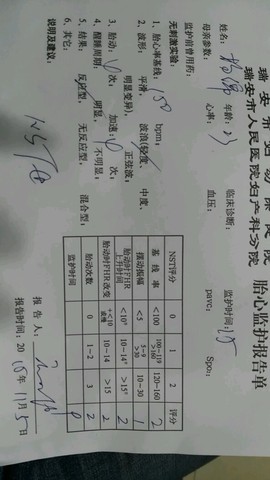 瑞安市妇幼保健院
瑞安市人民医院妇产科分院 胎心监护报告单
姓名: 年龄: 23 临床诊断: 监护时间:
母亲参数: 心率: 血压: pavc: Spo₂:
监护前曾用药:
无刺激实验:
1、胎心率基线: 150 bpm;
2、波形: 平滑, 波浪(轻度、 中度、
明显变异), 正弦波;
3、胎动: 次; 加速: 次;
4、醒睡周期: 明显, 不明显;
5、结果: 反应型, 无反应型, 混合型;
6、其它:
说明及建议:
NST
NST评分 0 1 2 评分
基线率 <100 100-119 >160 120-160 2
摆动振幅 <5 5-9 >30 10-30 1
胎动时FHR上升时间 <10″ 10-14″ >15″ 2
胎动时FHR改变 10-14 >15 2
胎动次数 0 1-2 3 2
监护时间
报告人:
报告时间: 20 年 11 月 5 日